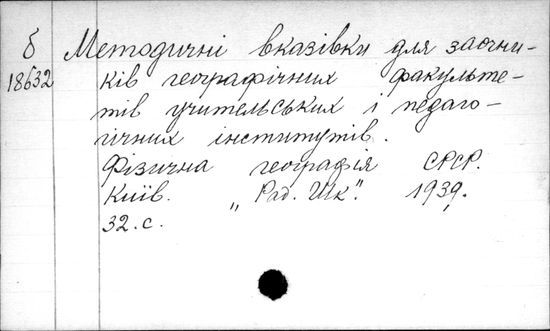 б Методичні вказівки для заочни-
18632 ків географічних факульте-
тів учительських і педаго-
гічних інститутів.
Фізична географія СРСР.
Київ. „Рад. Шк". 1939.
32. с.